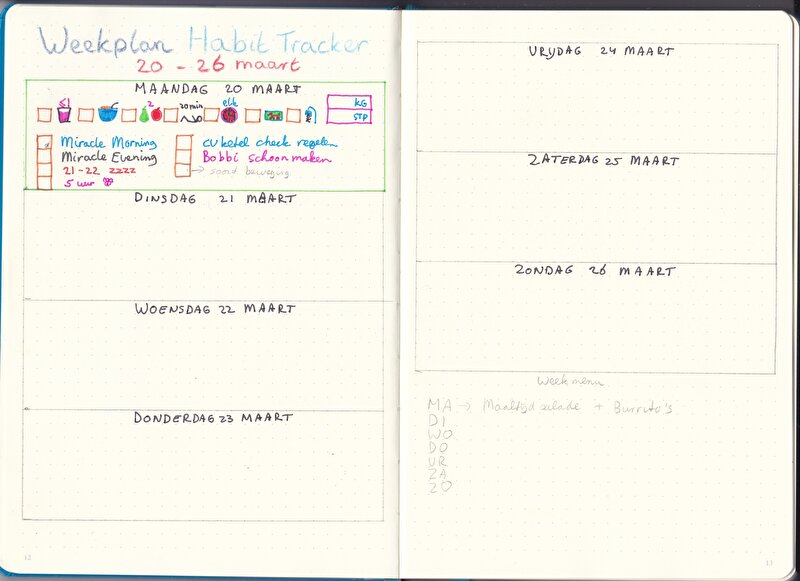 Weekplan Habit Tracker
20 - 26 maart
MAANDAG 20 MAART
2
20 min
KG
STP
Miracle Morning
Miracle Evening
21-22 zzzz
5 uur
cv ketel check regelen
Bobbi schoonmaken
→ soort beweging
DINSDAG 21 MAART
WOENSDAG 22 MAART
DONDERDAG 23 MAART
12
VRIJDAG 24 MAART
ZATERDAG 25 MAART
ZONDAG 26 MAART
Weekmenu
MA → Maaltijd salade + Burrito's
DI
WO
DO
VR
ZA
ZO
13